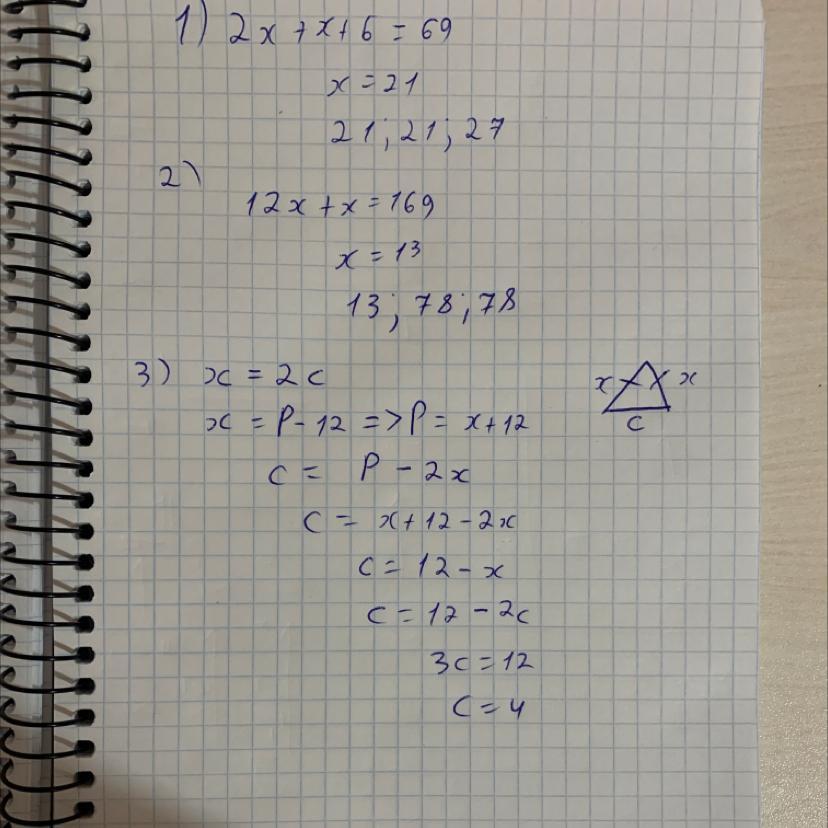 1) 2x + x + 6 = 69
x = 21
21; 21; 27
2)
12x + x = 169
x = 13
13; 78; 78
3) x = 2c
x x
x = P - 12 => P = x + 12
c
c = P - 2x
c = x + 12 - 2x
c = 12 - x
c = 12 - 2c
3c = 12
c = 4